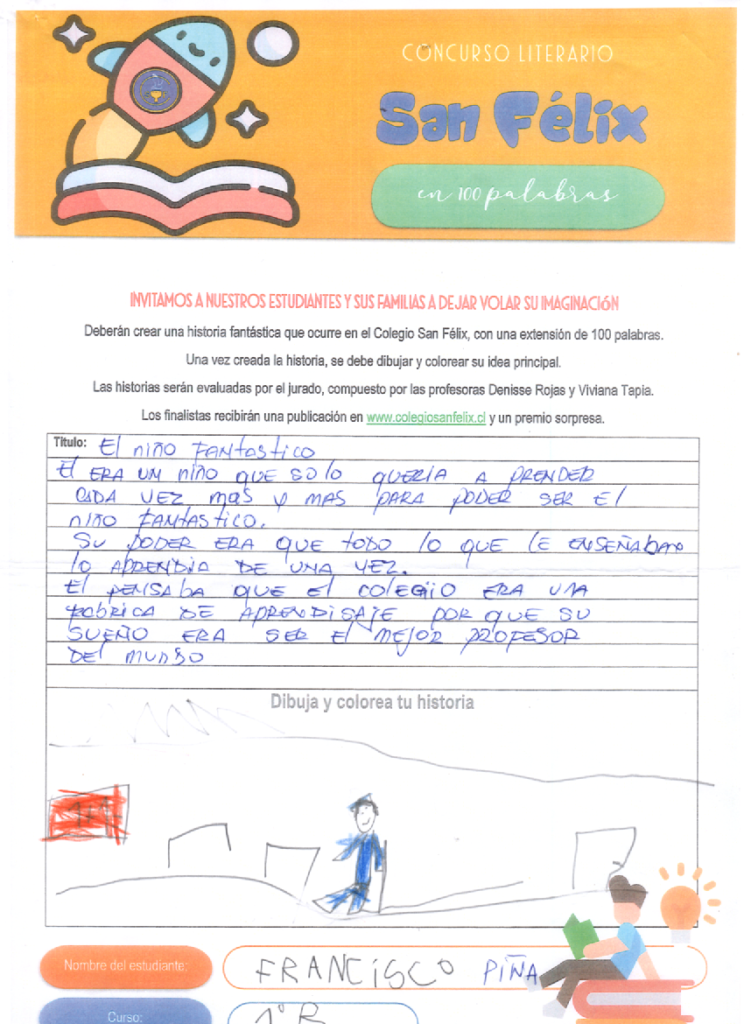 CONCURSO LITERARIO
San Félix
en 100 palabras
INVITAMOS A NUESTROS ESTUDIANTES Y SUS FAMILIAS A DEJAR VOLAR SU IMAGINACIÓN
Deberán crear una historia fantástica que ocurre en el Colegio San Félix, con una extensión de 100 palabras.
Una vez creada la historia, se debe dibujar y colorear su idea principal.
Las historias serán evaluadas por el jurado, compuesto por las profesoras Denisse Rojas y Viviana Tapia.
Los finalistas recibirán una publicación en www.colegiosanfelix.cl y un premio sorpresa.
Titulo: El niño FANTASTICO
El ERA UN niño QUE SOlO QUERIA A PRENDER
CADA VEZ mas y MAS PARA PODER SER El
niño FANTASTICO.
SU PODER ERA QUE todo lo QUE lE ENSEÑABAN
lo APRENDIA DE UNA VEZ.
El PENSABA QUE El COLEGIO ERA UNA
FABRICA DE APRENDISAJE POR QUE SU
SUEÑO ERA SER El MEJOR PROFESOR
DEl MUNDO
Dibuja y colorea tu historia
1+1
Nombre del estudiante: FRANCISCO PIÑA
Curso: 1° B